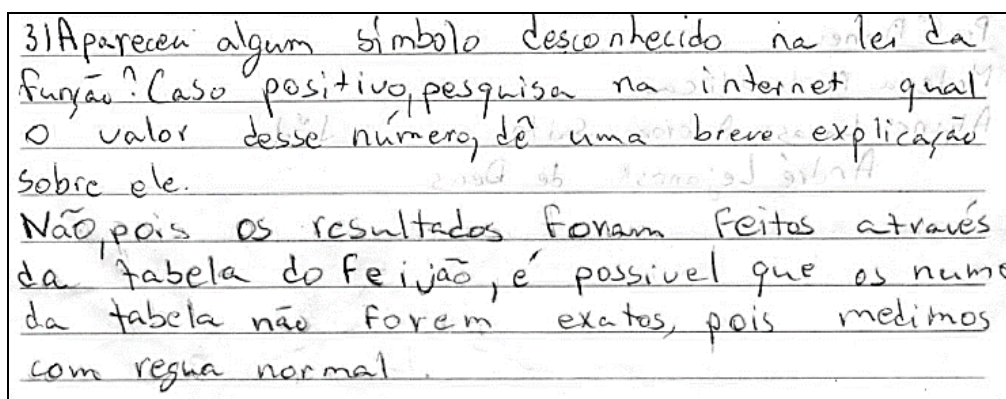 3) Apareceu algum símbolo desconhecido na lei da
função? Caso positivo, pesquisa na internet qual
o valor desse número, dê uma breve explicação
sobre ele.
Não, pois os resultados foram feitos através
da tabela do feijão, é possivel que os nume
da tabela não forem exatos, pois medimos
com regua normal.